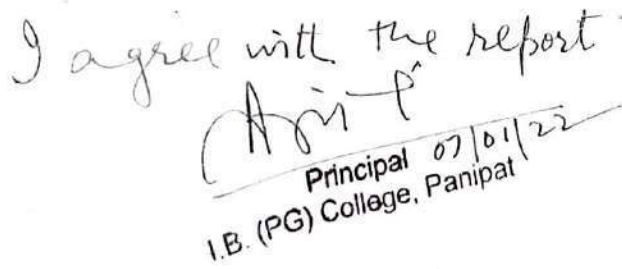 I agree with the report
Principal 07/01/22
I.B. (PG) College, Panipat